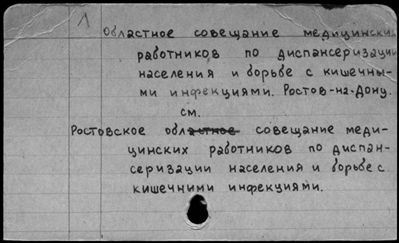 1
Областное совещание медицинских
работников по диспансеризации
населения и борьбе с кишечны-
ми инфекциями. Ростов-на-Дону.
см.
Ростовское областное совещание меди-
цинских работников по диспан-
серизации населения и борьбе с
кишечными инфекциями.